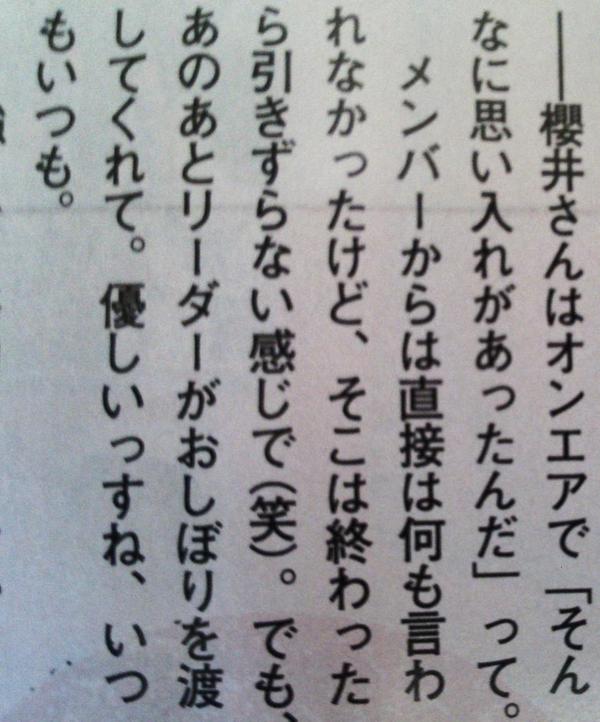 ――櫻井さんはオンエアで「そん
なに思い入れがあったんだ」って。
メンバーからは直接は何も言わ
れなかったけど、そこは終わった
ら引きずらない感じで(笑)。でも、
あのあとリーダーがおしぼりを渡
してくれて。優しいっすね、いつ
もいつも。